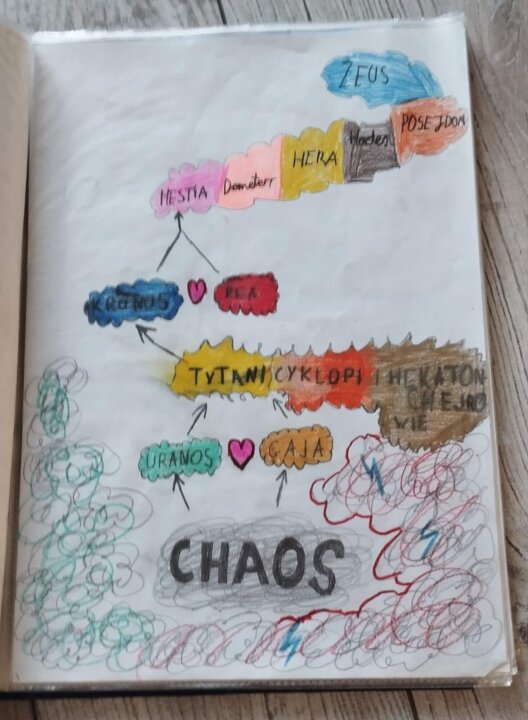 ZEUS
POSEJDON
Hades
HERA
Demeter
HESTIA
KRONOS
REA
TYTANI CYKLOPI I HEKATON
CHEJRO
WIE
URANOS
GAJA
CHAOS